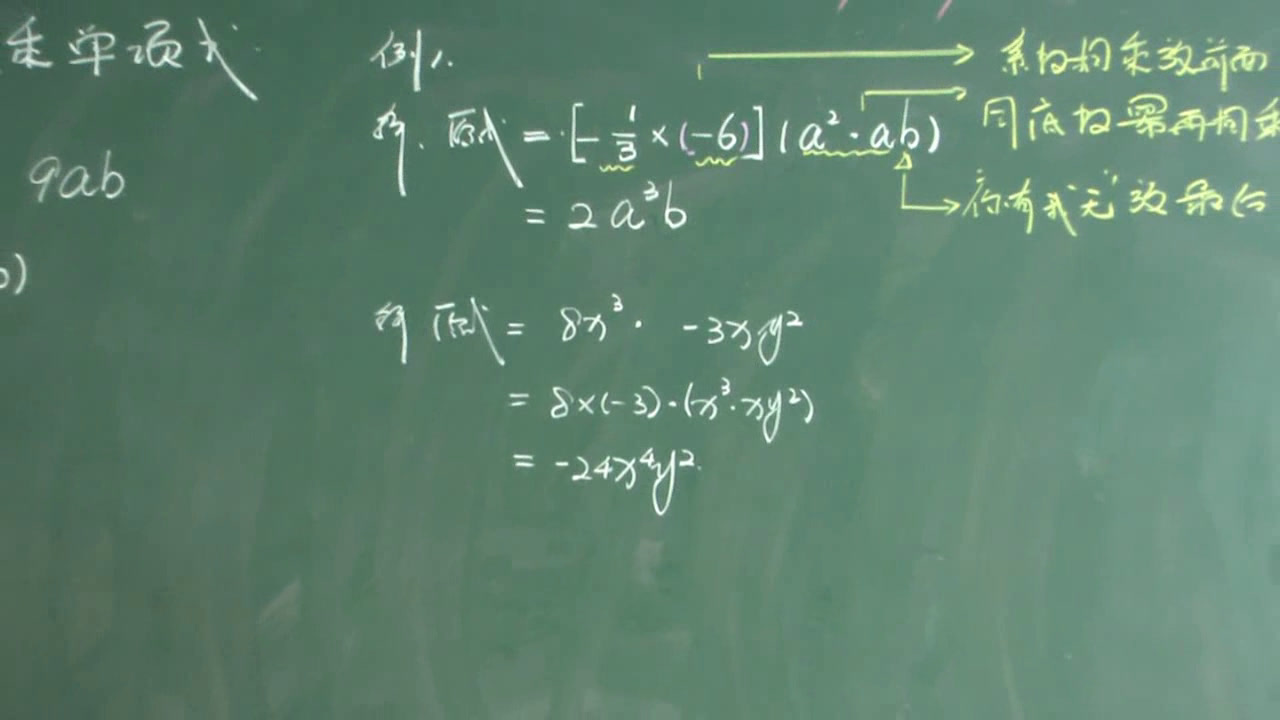 乘单项式
9ab
b)
例1.
解. 原式 = [-1/3×(-6)](a²·ab)
= 2a³b
系数相乘放前面
同底数幂再相乘
你有我"无"放最后
解 原式 = 8x³· -3xy²
= 8×(-3)·(x³·xy²)
= -24x⁴y².